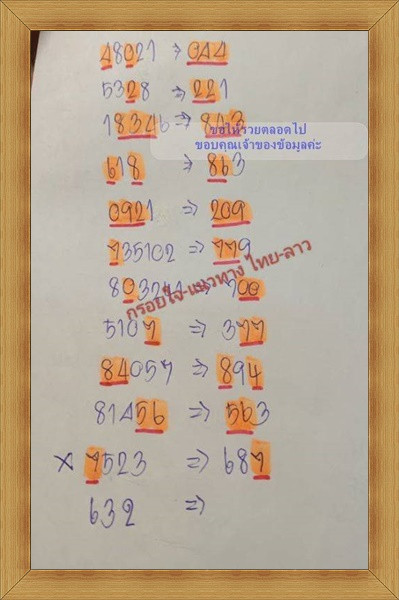 48021 => 044
5328 => 221
18346 => 843
ขอให้รวยตลอดไป
ขอบคุณเจ้าของข้อมูลค่ะ
618 => 863
0921 => 209
735102 => 779
กรอยใจ-แนวทาง ไทย-ลาว
=> 700
5107 => 377
84057 => 894
81456 => 563
× 7523 => 687
632 =>